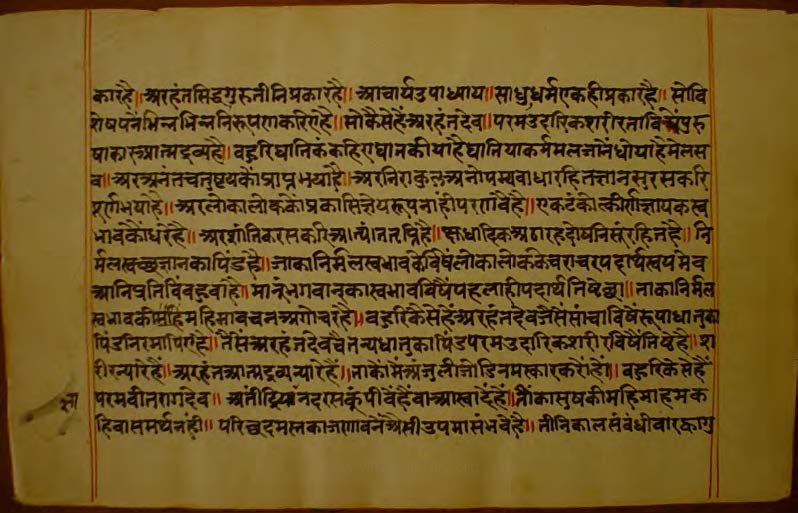 कारहै॥अरहंतसिद्धगुरुतीनिप्रकारहै॥आचार्यउपाध्याय॥साधुधर्मएकहीप्रकारहै॥सोवि
शेषपनेंभिन्नभिन्ननिरूपणकरिएहै॥सोकैसेहैंअरहंतदेव॥परमउदारिकशरीरताविषेंपुरु
षाकारआत्मद्रव्यहै॥बहुरिघातिकर्म घातियाकर्ममलजानेंधोयाहै
वा॥अरअनंतचतुष्टयकोंप्राप्तभयाहै॥अरनिराकुलअनोपम्यबाधारहितज्ञानसुरसकरि
पूर्णभयाहै॥अरलोकालोककोंप्रकासिज्ञेयरूपनांहीपरणवैहै॥एकटंकोत्कीर्णज्ञायकस्व
भावकोंधरेंहै॥अरशांतिकरसकरिअत्यंततृप्तिहै॥क्षुधादिकअठारहदोषनिसंरहितहै॥नि
र्मलस्वच्छज्ञानकापिंडहै॥जाकानिर्मलस्वभावकेविषेंलोकालोककेचराचरपदार्थस्वयमेव
आनिप्रतिबिंबहूवाहै॥मानूंभगवानकास्वभावविषेंपहलाहीपदार्थतिष्टेछा॥ताकानिर्मल
स्वभावकीमहिमावचनअगोचरहै॥बहुरिकैसेहैंअरहंतदेवजैसेंसांचाविषेंरूपाधातुका
पिंडनिरमापिएहै॥तैसेंअरहंतदेवचैतन्यधातुकापिंडपरमउदारिकशरीरविषेंतिष्टेहै॥श
रीरन्यारोहै॥अरहंतआत्मद्रव्यन्यारोहै॥ताकोंमेंअंजुलीजोडिनमस्कारकरोंहों॥बहुरिकैसेहैं
परमवीतरागदेव॥अतींद्रियानंदरसकूंपीवेंहैंवाआस्वादेंहैं॥तींकासुषकीमहिमाहमक
हिवासमर्थनांही॥ उपमासंभवेहै॥तीनिकालसंबंधीबाराकागु